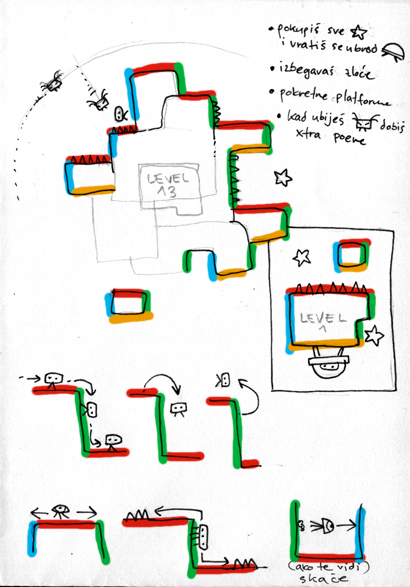 • pokupiš sve ☆
i vratiš se u brod
• izbegavaš zloće
• pokretne platforme
• kad ubiješ dobiš
xtra poene
LEVEL
13
LEVEL
1
(ako te vidi)
skače